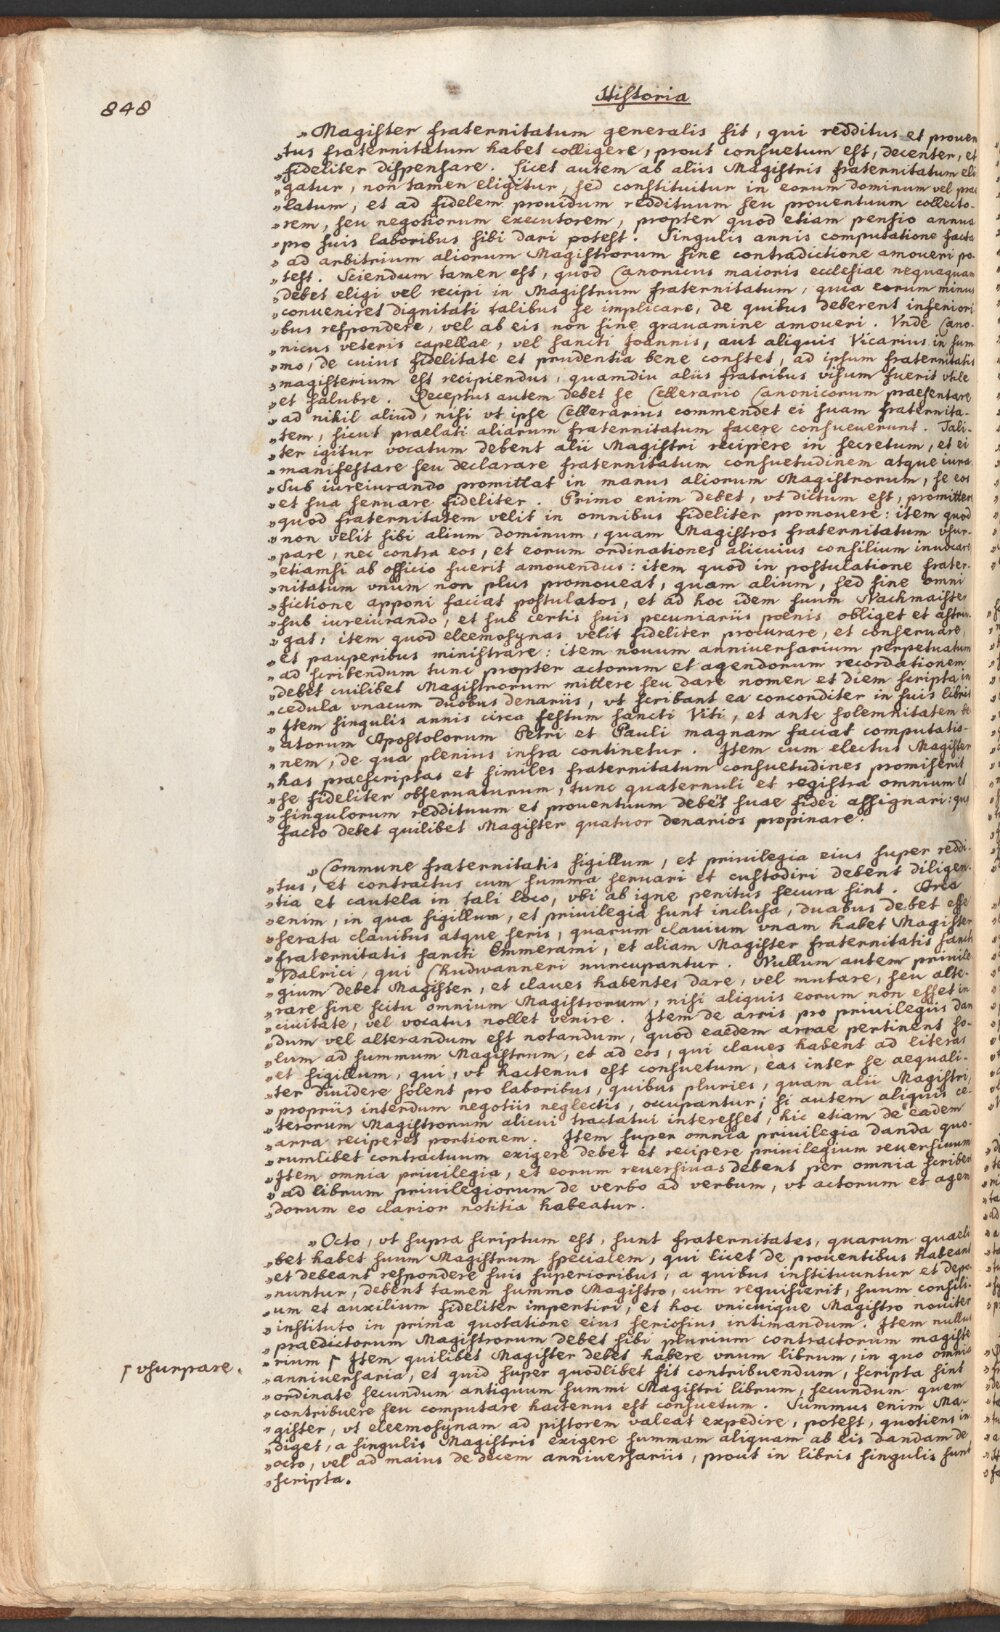 848
Historia
„Magister fraternitatum generalis sit, qui redditus et prouen
„tus fraternitatum habet colligere, prout consuetum est, decenter, et
„fideliter dispensare. Licet autem ab aliis Magistris fraternitatum eli
„gatur, non tamen eligitur, sed constituitur in eorum dominum vel prae
„latum, et ad fidelem prouidum reddituum seu prouentuum collecto-
„rem, seu negotiorum executorem, propter quod etiam pensio annua
„pro suis laboribus sibi dari potest. Singulis annis computatione facta
„ad arbitrium aliorum Magistrorum sine contradictione amoueri po-
„test. Sciendum tamen est, quod Canonicus maioris ecclesiae nequaquam
„debet eligi vel recipi in Magistrum fraternitatum, quia eorum minus
„conueniret dignitati talibus se implicare, de quibus deberent inferiori
„bus respondere, vel ab eis non sine grauamine amoueri. Vnde Cano-
„nicus veteris capellae, vel sancti Joannis, aut aliquis Vicarius in sum
„mo, de cuius fidelitate et prudentia bene constet, ad ipsum fraternitatis
„magisterium est recipiendus, quamdiu aliis fratribus visum fuerit vtile
„et salubre. Receptus autem debet se Cellerario Canonicorum praesentare
„ad nihil aliud, nisi vt ipse Cellerarius commendet ei suam fraternita-
„tem, sicut praelati aliarum fraternitatum facere consueuerunt. Tali-
„ter igitur vocatum debent alii Magistri recipere in secretum, et ei
„manifestare seu declarare fraternitatum consuetudinem atque iura.
„Sub iureiurando promittat in manus aliorum Magistrorum, se eos
„et sua seruare fideliter. Primo enim debet, vt dictum est, promittere
„quod fraternitatem velit in omnibus fideliter promouere: item quod
„non velit sibi alium dominum, quam Magistros fraternitatum vsur-
„pare, nec contra eos, et eorum ordinationes alicuius consilium inuocare
„etiamsi ab officio fuerit amouendus: item quod in postulatione frater-
„nitatum vnum non plus promoueat, quam alium, sed sine omni
„fictione apponi faciat postulatos, et ad hoc idem suum Nachmaister
„sub iureiurando, et sub certis suis pecuniariis poenis obliget et astrin
„gat: item quod eleemosynas velit fideliter procurare, et conseruare,
„et pauperibus ministrare: item nouum anniuersarium perpetuatum
„ad scribendum tunc propter actorum et agendorum recordationem
„debet cuilibet Magistrorum mittere seu dare nomen et diem scripta in
„cedula vnacum duobus denariis, vt scribant ea concorditer in suis libris
„Item singulis annis circa festum sancti Viti, et ante solemnitatem be
„atorum Apostolorum Petri et Pauli magnam faciat computatio-
„nem, de qua plenius infra continetur. Item cum electus Magister
„has praescriptas et similes fraternitatum consuetudines promiserit
„se fideliter obseruaturum, tunc quaternuli et registra omnium et
„singulorum reddituum et prouentuum debet suae fidei assignari: quo
„facto debet quilibet Magister quatuor denarios propinare.
„Commune fraternitatis sigillum, et priuilegia eius super reddi-
„tus, et contractus cum summa seruari et custodiri debent diligen-
„tia et cautela in tali loco, vbi ab igne penitus secura sint. Arca
„enim, in qua sigillum, et priuilegia sunt inclusa, duabus debet esse
„serata clauibus atque seris, quarum clauium vnam habet Magister
„fraternitatis sancti Emmerami, et aliam Magister fraternitatis sancti
„Vdalrici, qui Chudwanneri nuncupantur. Nullum autem priuile
„gium debet Magister, et claues habentes dare, vel mutare, seu alte-
„rare sine scitu omnium Magistrorum, nisi aliquis eorum non esset in
„ciuitate, vel vocatus nollet venire. Item de arris pro priuilegiis dan
„dum vel alterandum est notandum, quod eaedem arrae pertinent so-
„lum ad summum Magistrum, et ad eos, qui claues habent ad literas
„et sigillum, qui, vt hactenus est consuetum, eas inter se aequali-
„ter diuidere solent pro laboribus, quibus pluries, quam alii Magistri,
„propriis interdum negotiis neglectis, occupantur; si autem aliquis ce-
„terorum Magistrorum alicui tractatui interesset, hic etiam de eadem
„arra reciperet portionem. Item super omnia priuilegia danda quo-
„rumlibet contractuum exigere debet et recipere priuilegium reuersiuum
„Item omnia priuilegia, et eorum reuersiuas debent per omnia scriber
„ad librum priuilegiorum de verbo ad verbum, vt actorum et agen
„dorum eo clarior notitia habeatur.
„Octo, vt supra scriptum est, sunt fraternitates, quarum quaeli
„bet habet suum Magistrum specialem, qui licet de prouentibus habeant
„et debeant respondere suis superioribus, a quibus instituuntur et depo
„nuntur, debent tamen summo Magistro, cum requisierit, suum consili-
„um et auxilium fideliter impertiri, et hoc vnicuique Magistro nouiter
„instituto in prima quotatione eius seriosius intimandum. Item nullus
„praedictorum Magistrorum debet sibi plurium contractorum magiste
„rium ┌ Item quilibet Magister debet habere vnum librum, in quo omnia
┌ vsurpare.
„anniuersaria, et quid super quodlibet sit contribuendum, scripta sint
„ordinate secundum antiquum summi Magistri librum, secundum quem
„contribuere seu computare hactenus est consuetum. Summus enim Ma-
„gister, vt eleemosynam ad pistorem valeat expedire, potest, quotiens in
„diget, a singulis Magistris exigere summam aliquam ab eis dandam de
„octo, vel ad maius de decem anniuersariis, prout in libris singulis sunt
„scripta.